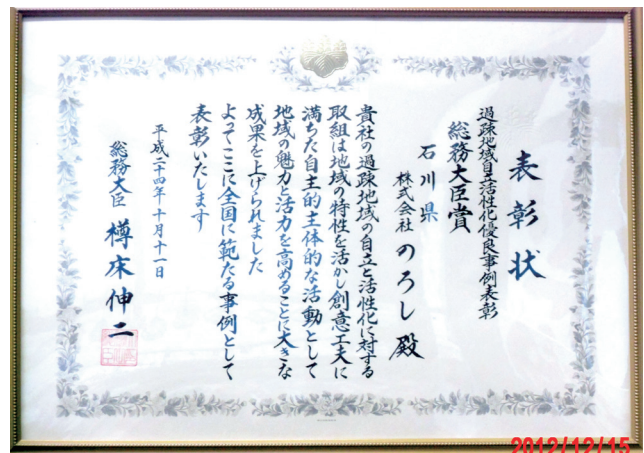 表彰状
過疎地域自立活性化優良事例表彰
総務大臣賞
石川県
株式会社 のろし 殿
貴社の過疎地域の自立と活性化に対する
取組は地域の特性を活かし創意工夫に
満ちた自主的主体的な活動として
地域の魅力と活力を高めることに大きな
成果を上げられました
よってここに全国に範たる事例として
表彰いたします
平成二十四年十月十一日
総務大臣 樽床伸二
2012/12/15